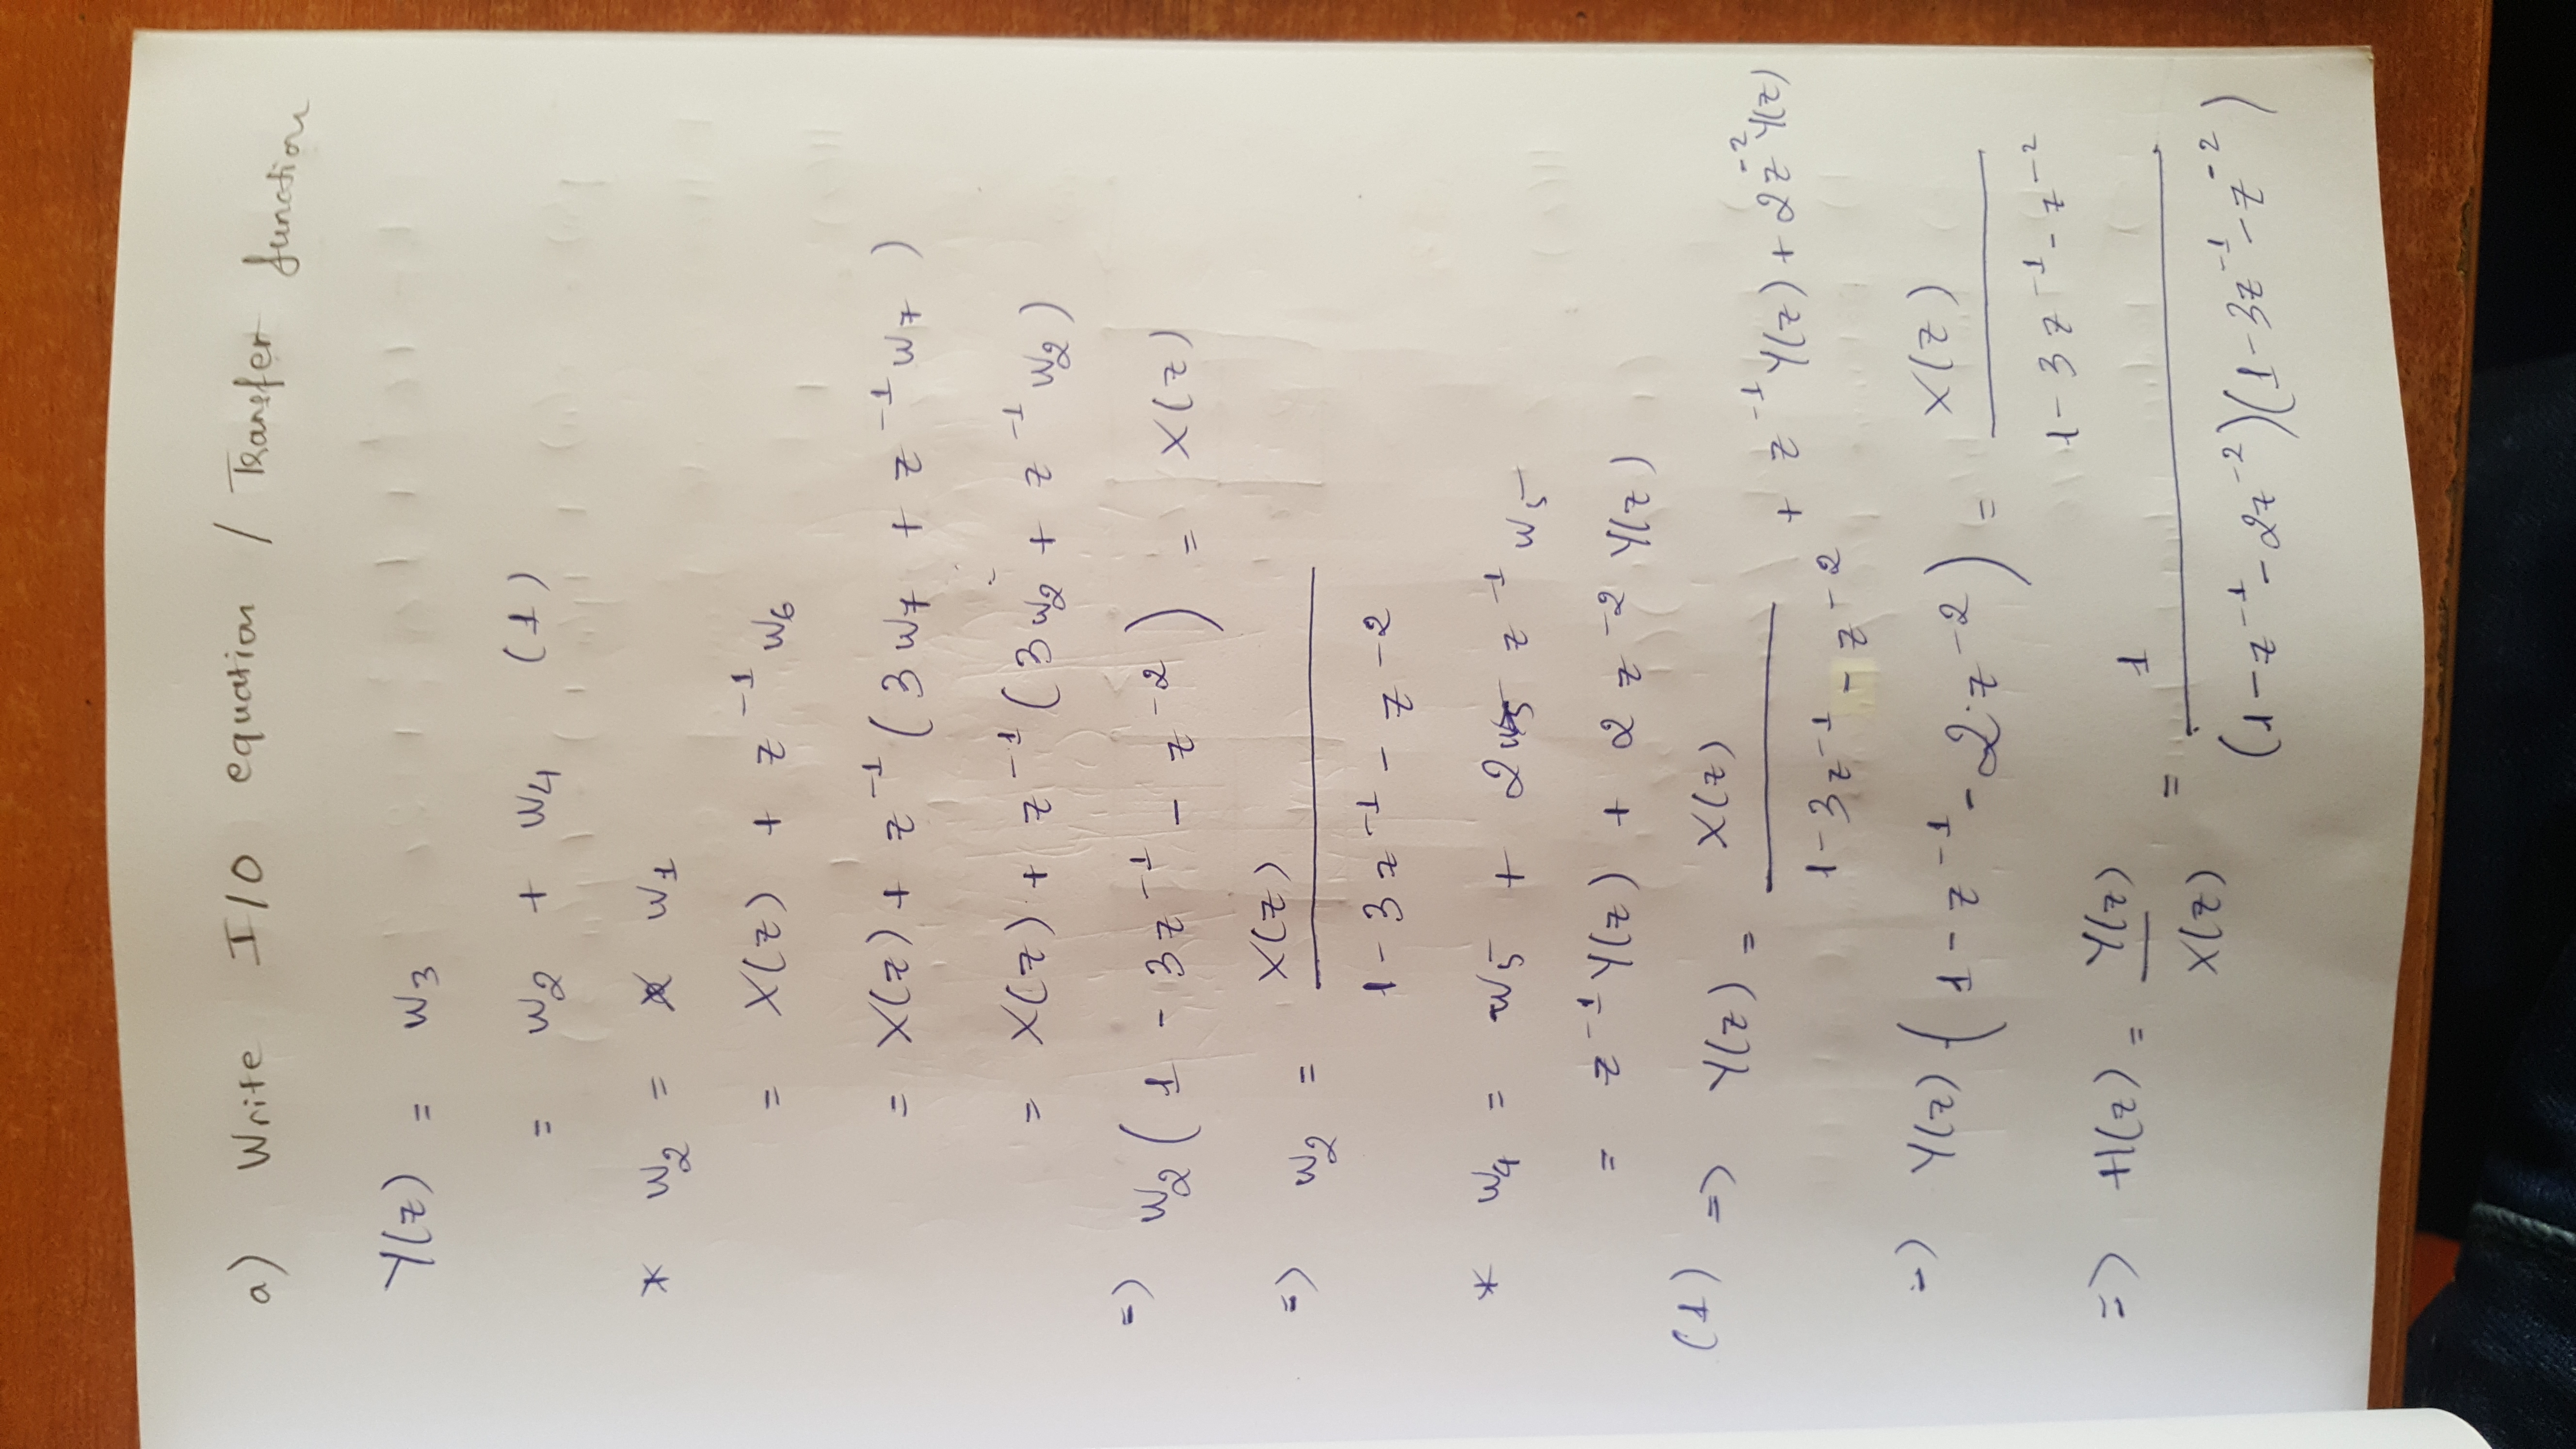 a) Write I/O equation / Transfer function
Y(z) = w3
= w2 + w4 (1)
* w2 = w1
= X(z) + z^-1 w6
= X(z) + z^-1 (3w7 + z^-1 w7)
= X(z) + z^-1 (3w2 + z^-1 w2)
=> w2 (1 - 3z^-1 - z^-2) = X(z)
=> w2 = X(z) / (1 - 3z^-1 - z^-2)
* w4 = w5 + 2 z^-1 w5
= z^-1 Y(z) + 2 z^-2 Y(z)
(1) => Y(z) = X(z) / (1 - 3z^-1 - z^-2) + z^-1 Y(z) + 2z^-2 Y(z)
=> Y(z) (1 - z^-1 - 2.z^-2) = X(z) / (1 - 3z^-1 - z^-2)
=> H(z) = Y(z) / X(z) = 1 / (1 - z^-1 - 2z^-2)(1 - 3z^-1 - z^-2)